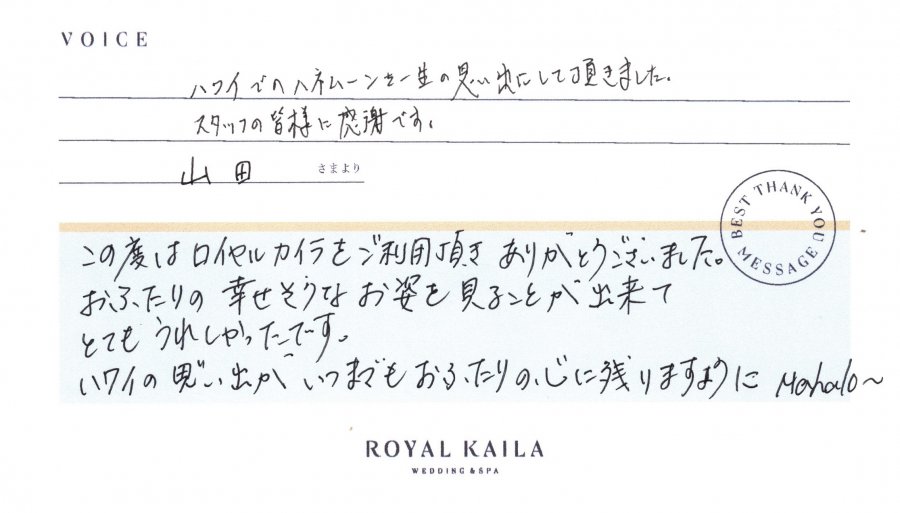 VOICE
ハワイでのハネムーンを一生の思い出にして頂きました。
スタッフの皆様に感謝です。
山田 さまより
BEST THANK YOU MESSAGE
この度はロイヤルカイラをご利用頂きありがとうございました。
おふたりの幸せそうなお姿を見ることが出来て
とてもうれしかったです。
ハワイの思い出がいつまでもおふたりの心に残りますように Mahalo～
ROYAL KAILA
WEDDING & SPA